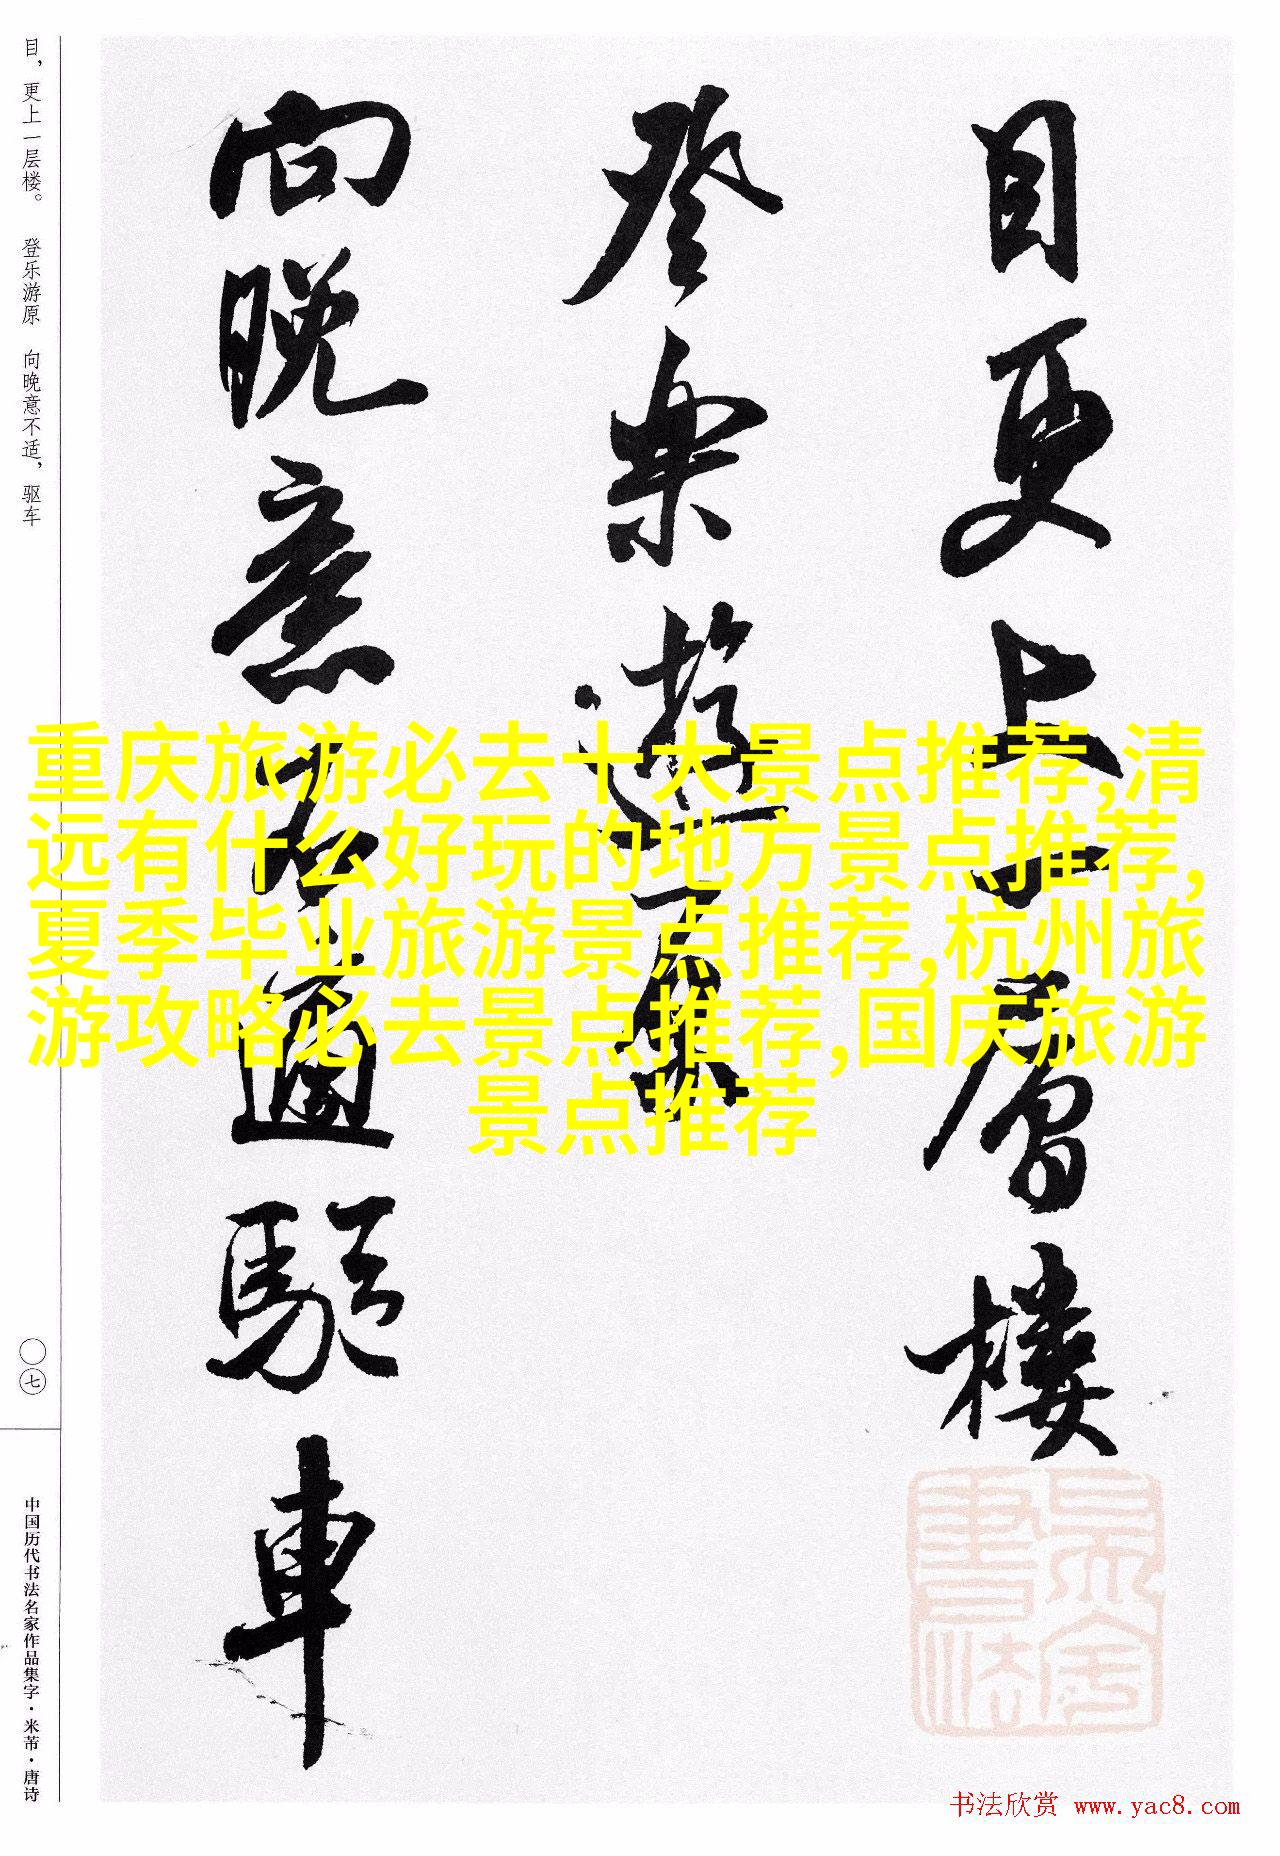 目更上一层楼
登乐游原
向晚意不適駈車
目，更上一层楼。 登乐游原 向晚意不适，驱车
〇七
中国历代书法名家作品集字·米芾·唐诗
重庆旅游必去十大景点推荐,清
远有什么好玩的地方景点推荐,
夏季毕业旅游景点推荐,杭州旅
游攻略必去景点推荐,国庆旅游
景点推荐
书法欣赏 www.yac8.com